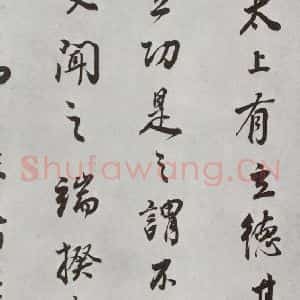 太上有立德其
立功是之謂不
聞之端揆
Shufawang.CN